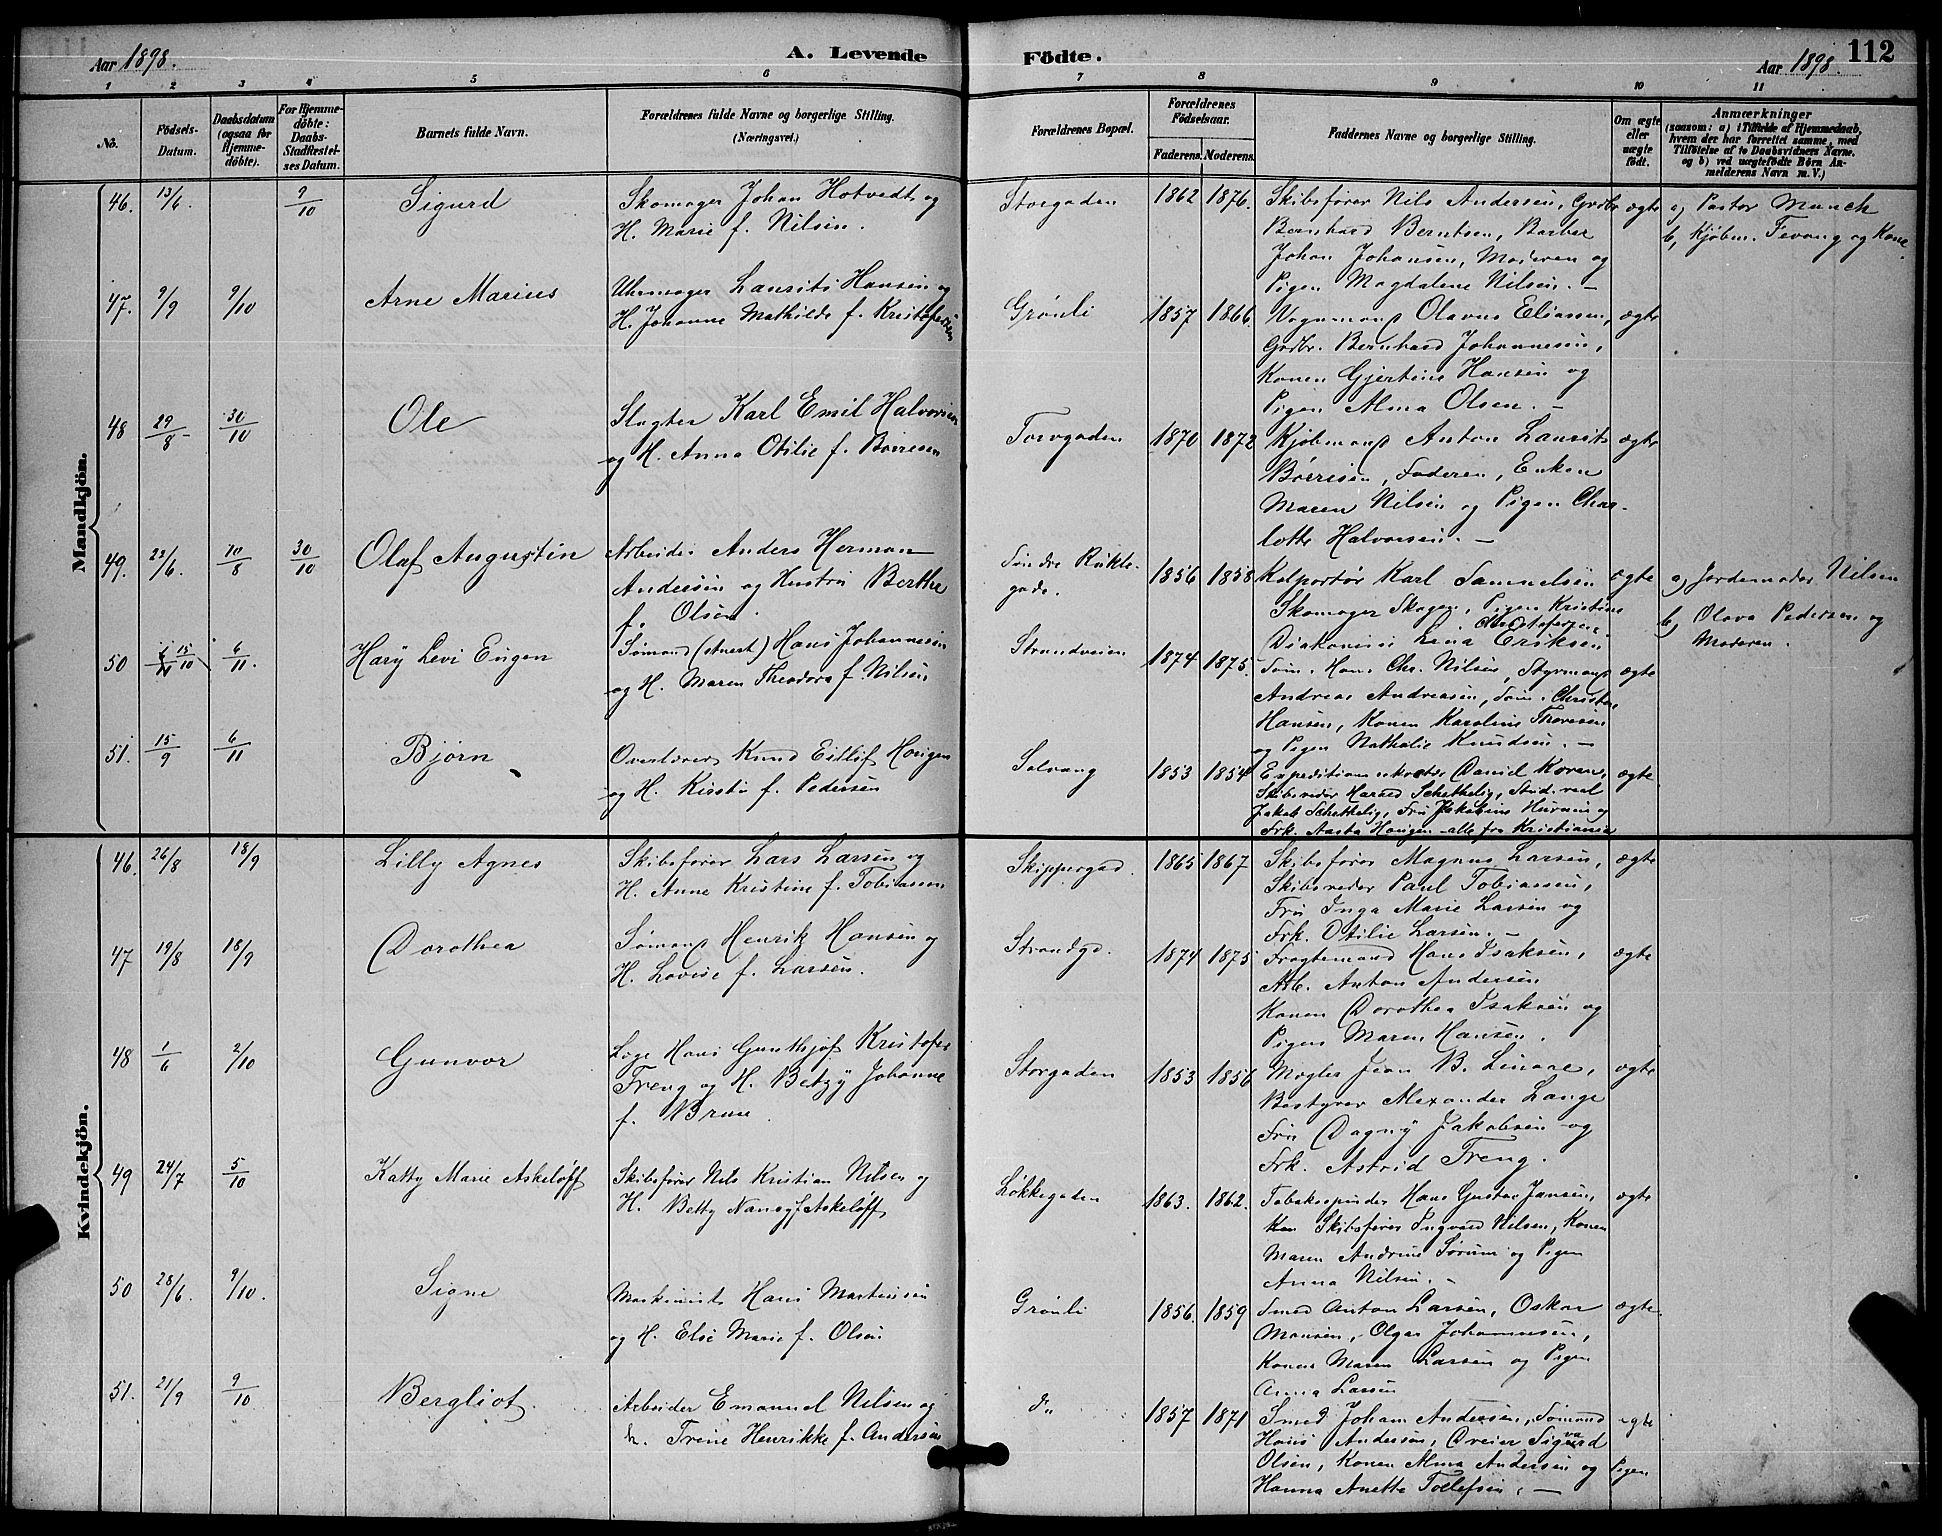 Aar 1898.
A. Levende
Födte.
Aar 1898.
112
1 2 3 4 5 6 7 8 9 10 11
No.
Födsels-Datum.
Daabsdatum (ogsaa for Hjemmedöbte).
For Hjemmedöbte: Daabs-Stadfestelses Datum.
Barnets fulde Navn.
Forældrenes fulde Navne og borgerlige Stilling.
(Næringsvei.)
Forældrenes Bopæl.
Forældrenes Födselsaar.
Faderens. Moderens.
Faddernes Navne og borgerlige Stilling.
Om ægte eller uægte födt.
Anmærkninger
(saasom: a) i Tilfælde af Hjemmedaab, hvem der har forrettet samme, med Tilföielse af to Daabsvidners Navne, og b) ved uægtefödte Börn Anmelderens Navn m. V.)
Mandkjön.
46. 13/6 9/10 Sigurd
Skomager Johan Hotvedt og
H. Marie f. Nilsen.
Storgaden 1862 1876.
Skibsfører Nils Andersen, Grdbr
Bernhard Berntsen, Barber
Johan Johansen, Moderen og
Pigen Magdalene Nilsen. —
ægte
a) Pastor Munch
b, Kjøbm. Fevang og Kone.
47. 9/9 9/10 Arne Marius
Uhrmager Laurits Hansen og
H. Johanne Mathilde f. Kristofersen
Grønli 1857 1866.
Vognmand Olavus Eliassen,
Grdbr. Bernhard Johannesen,
Konen Gjertine Hansen og
Pigen Alma Olsen. —
ægte
48 29/8 30/10 Ole
Slagter Karl Emil Halvorsen
og H. Anna Otilie f. Børresen
Torvgaden 1870 1872
Kjøbmand Anton Laurits
Børresen, Faderen, Enken
Maren Nilsen og Pigen Char-
lotte Halvorsen. —
ægte
49. 22/6. 10/8 30/10 Olaf Augustin
Arbeider Anders Herman
Andersen og Hustru Berthe
f. Olsen.
Søndre
gade. 1856 1858
Kolportør Karl Samuelsen
Skomager Skogen, Pigen Kristine
Diakonisse Lina Eriksen
ægte
a, Jordemoder Nilsen
b, Olava Pedersen og
Moderen.
50 15/10 6/11. Hary Levi Eugen
Sømand Hans Johannesen
og H. Maren Theodora f. Nilsen
Strandveien 1874 1875.
Søm. Hans Chr. Nilsen, Styrmand
Andreas Andreasen, Søm. Christen
Hansen, Konen Karoline Thoresen
og Pigen Nathalie Knudsen. —
ægte
51. 15/9 6/11 Bjørn
Overlærer Knud Eilif Hougen
og H. Kirsti f. Pedersen
Solvang 1853 1854
Expeditionssekretær Daniel Koren,
Skibsreder Harald Schethelig, Stud. real
Jakob Schethelig, Fru Jakobine og
Frk. Aasta Hougen - alle fra Kristiania
ægte
Kvindekjön.
46. 26/8 18/9 Lilly Agnes
Skibsfører Lars Larsen og
H. Anne Kristine f. Tobiassen
Skippergad. 1865 1867
Skibsfører Magnus Larsen,
Skibsreder Paul Tobiassen,
Fru Inga Marie Larsen og
Frk. Otilie Larsen. —
ægte
47 19/8 18/9 Dorothea
Sømand Henrik Hansen og
H. Lovise f. Larsen.
Strandgd. 1874 1875
Fragtemand Hans Isaksen,
Arb. Anton Andersen
Konen Dorothea Isaksen og
Pigen Maren Hansen.
ægte
48 1/6 2/10 Gunvor
Læge Hans Gunthjof Kristofer
Treng og H. Betzy Johanne
f. Brun.
Storgaden 1853 1856
Mægler Jean B. Linaae,
Bestyrer Alexander Lange
Fru Dagny Jakobsen og
Frk. Astrid Treng.
ægte
49 24/7 5/10 Katty Marie Askeløff
Skibsfører Nils Kristian Nilsen og
H. Betty Nancy f. Askeløff
Løkkegaden 1863. 1862.
Tobakspinder Hans Gustav Jansen,
Skibsfører Ingvard Nilsen, Konen
Maren Andrine Sørum og Pigen
Anna Nilsen. —
ægte
50 28/6. 9/10. Signe
Maskinist Hans Martinsen
og H. Else Marie f. Olsen
Grønli 1856. 1859
Smed Anton Larsen, Oskar
Monsen, Olgar Johannesen,
Konen Maren Larsen og Pigen
Anna Larsen
ægte.
51. 21/9 9/10 Bergliot
Arbeider Emanuel Nilsen og
h. Trine Henrikke f. Andersen
d" 1857 1871
Smed Johan Andersen, Sømand
Hans Andersen, Dreier Sigvard
Olsen, Konen Alma Andersen og Pigen
Hanna Anette Tollefsen. —
ægte